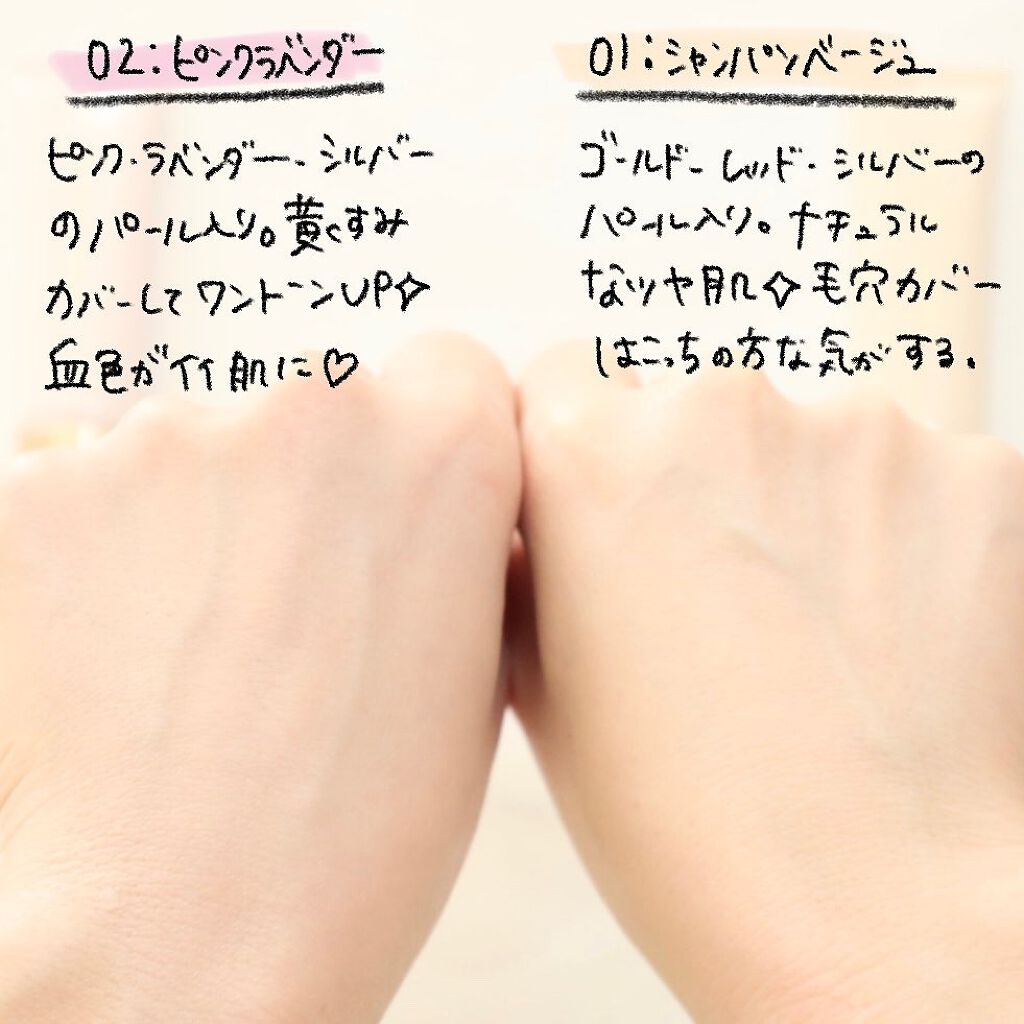 02:ピンクラベンダー
ピンク・ラベンダー・シルバー
のパール入り。黄くすみ
カバーしてワントーンUP✧
血色がイイ肌に♡
01:シャンパンベージュ
ゴールド・レッド・シルバーの
パール入り。ナチュラル
なツヤ肌✧毛穴カバー
はこっちの方な気がする.